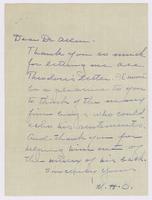 Dear Dr. Allen:
Thank you so much
for letting me see
Theodore's letter. It would
be a pleasure to you
to think of the many
who could
echo his sentiments.
And thank you for
helping him out of
the of his bath.
Sincerely yours
N. H. D.